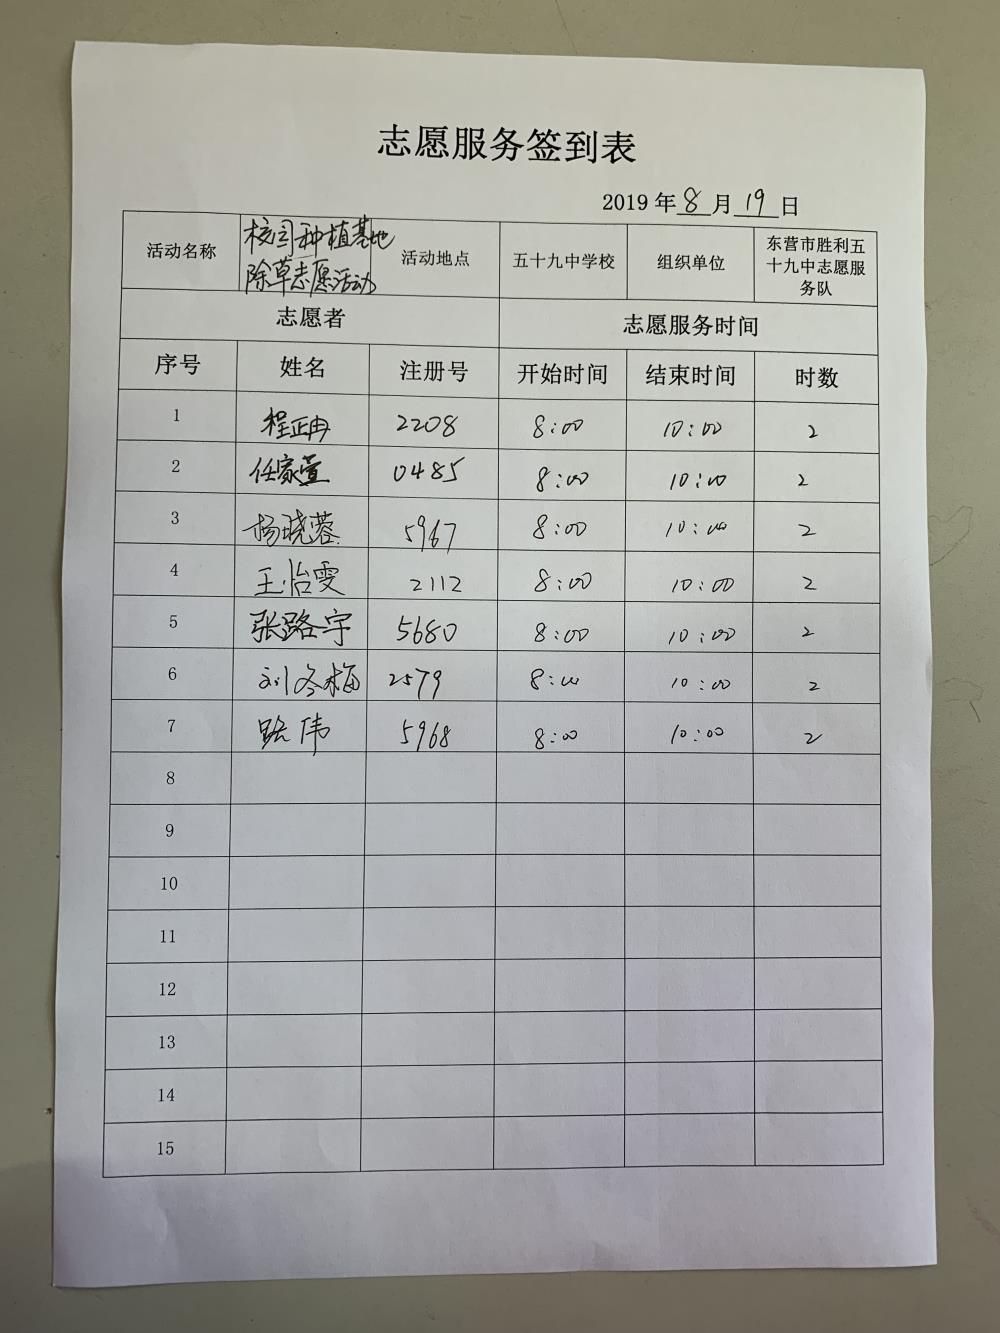 志愿服务签到表
2019 年 8 月 19 日
活动名称 校园种植基地除草志愿活动 活动地点 五十九中学校 组织单位 东营市胜利五十九中志愿服务队
志愿者 志愿服务时间
序号 姓名 注册号 开始时间 结束时间 时数
1 程正冉 2208 8:00 10:00 2
2 任家萱 0485 8:00 10:00 2
3 杨晓蓉 5967 8:00 10:00 2
4 王怡雯 2112 8:00 10:00 2
5 张路宇 5680 8:00 10:00 2
6 刘冬梅 2579 8:00 10:00 2
7 路伟 5968 8:00 10:00 2
8
9
10
11
12
13
14
15